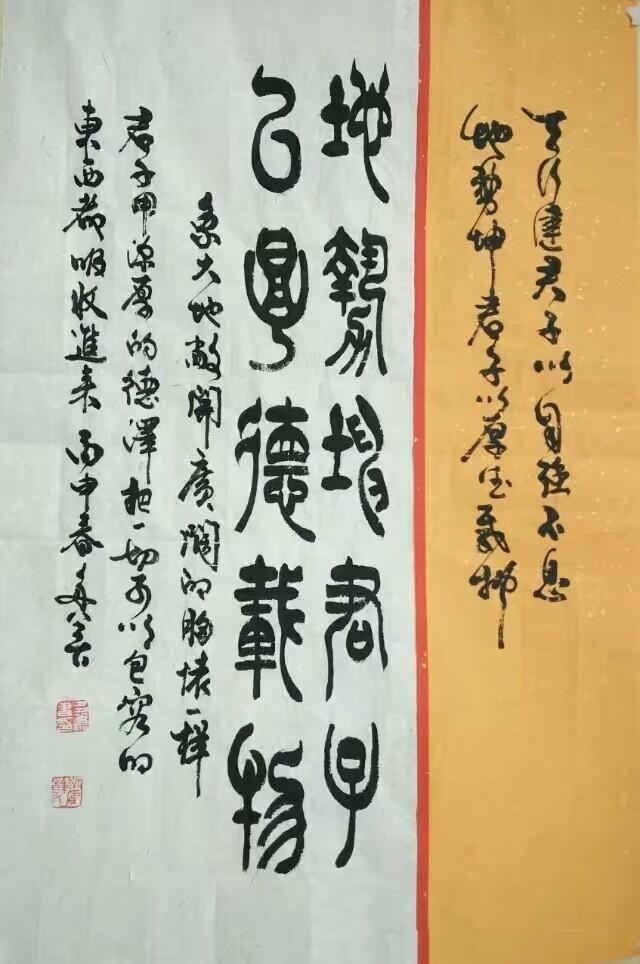 天行健君子以自强不息
地势坤君子以厚德载物
地勢坤君子
以厚德載物
象大地敞開廣濶的胸懷一樣
君子用深厚的德澤把一切可以包容的
東西都吸收進来丙申春